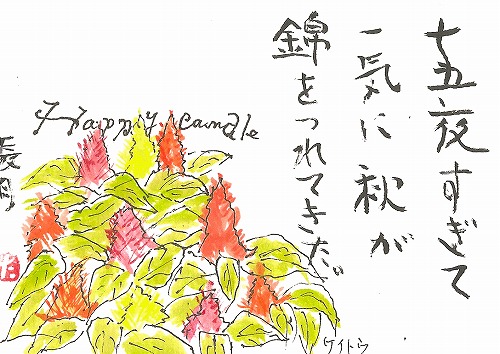 十五夜すぎて
一気に秋が
錦をつれてきた
Happy candle
ケイトウ